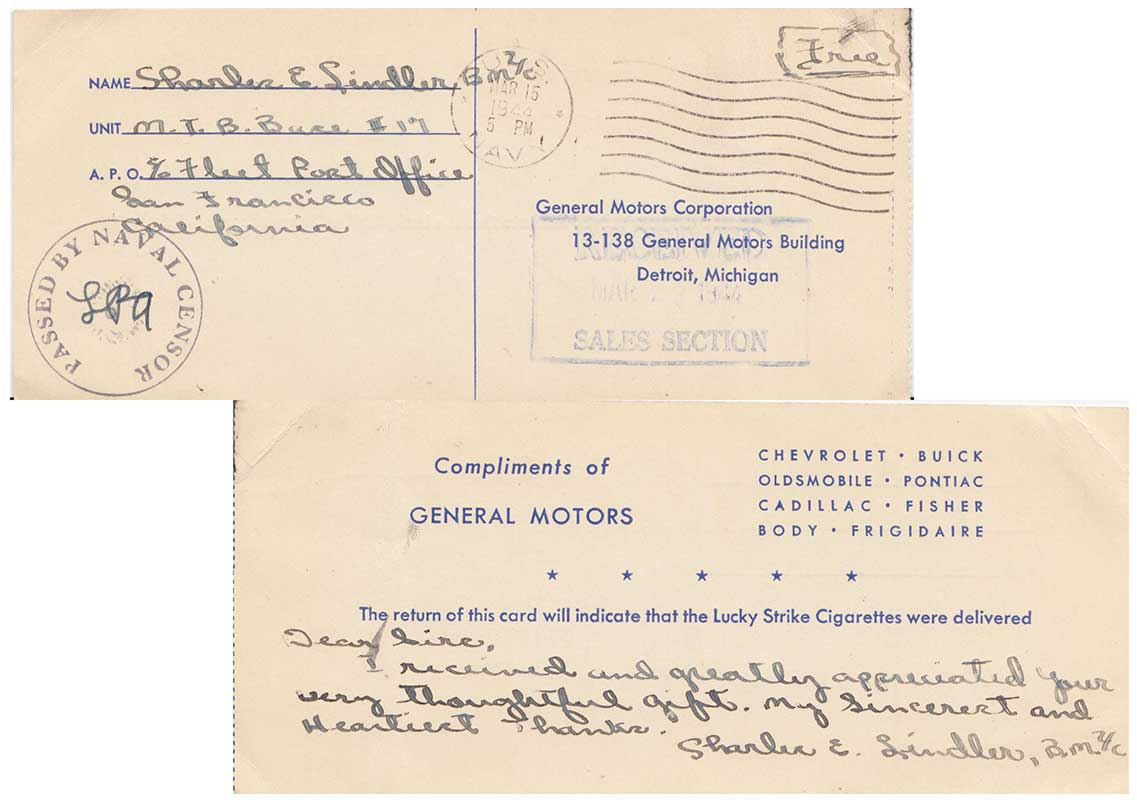 NAME Sharles E. Lindler, B.M. 2/c
UNIT M.T.B. Base #17
A. P. O. c/o Fleet Post Office
San Francisco
California
PASSED BY NAVAL CENSOR
U.S. NAVY
MAR 15
1944
5 PM
Free
General Motors Corporation
13-138 General Motors Building
Detroit, Michigan
SALES SECTION
Compliments of
GENERAL MOTORS
CHEVROLET · BUICK
OLDSMOBILE · PONTIAC
CADILLAC · FISHER
BODY · FRIGIDAIRE
★ ★ ★ ★ ★
The return of this card will indicate that the Lucky Strike Cigarettes were delivered
Dear Sirs,
I received and greatly appreciated your
very thoughtful gift. My Sincerest and
Heartiest Thanks.
Sharles E. Lindler, B.M. 2/c